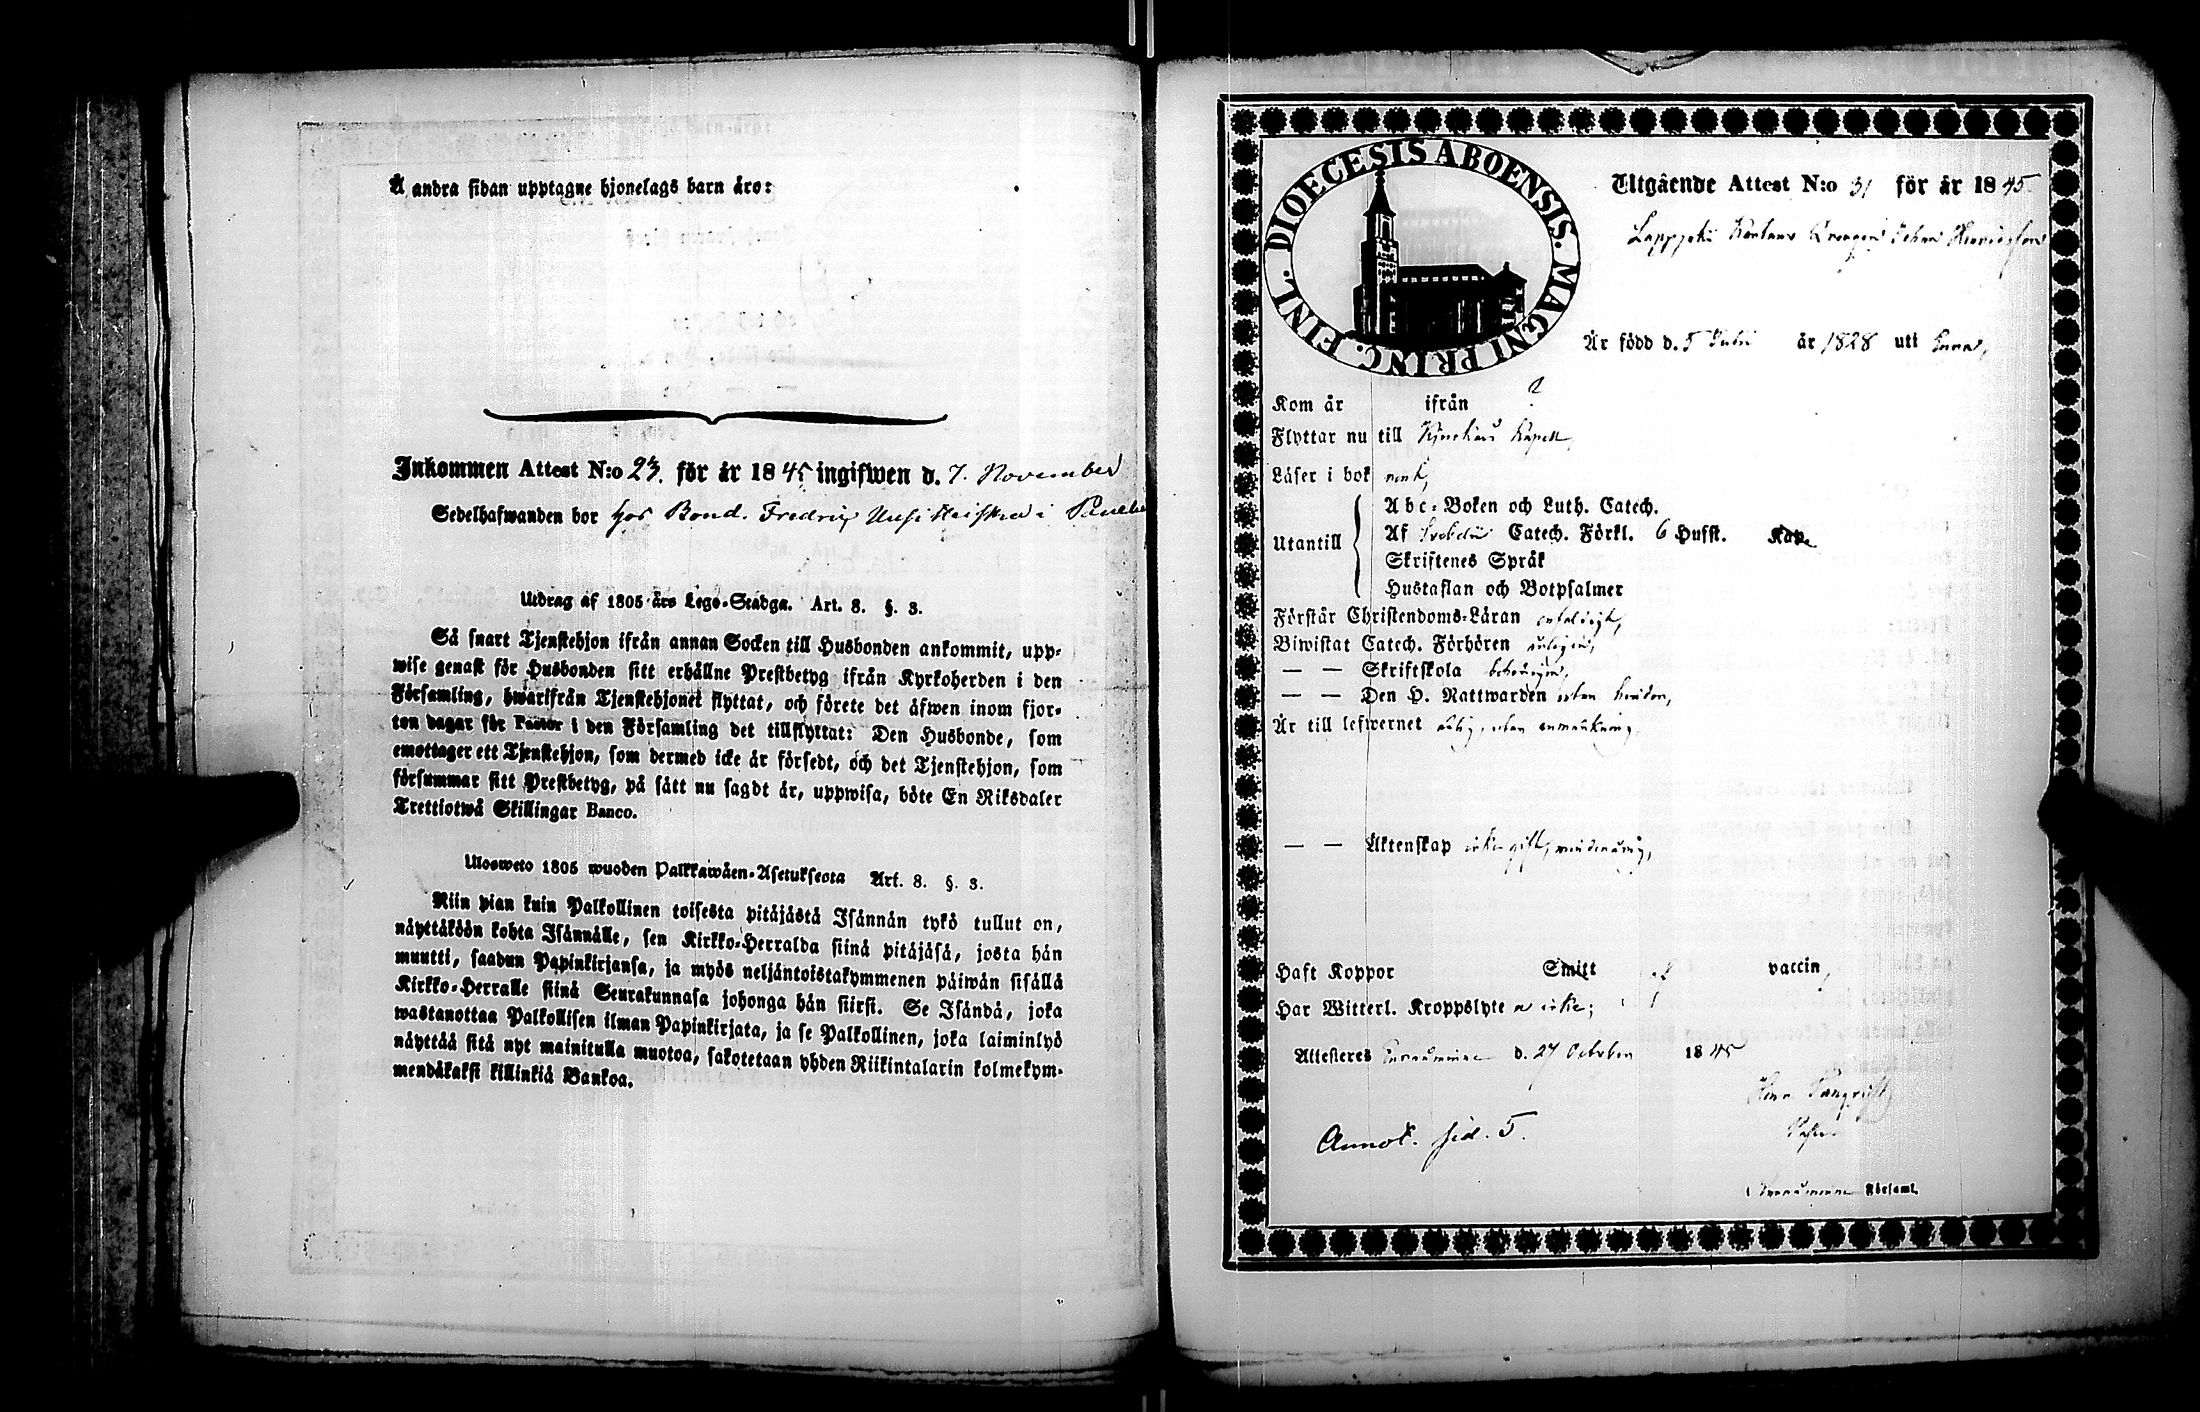 Å andra sidan upptagne hjonelags barn äro:
Inkommen Attest N:o 23. för år 1845 ingifwen d. 7. November
Sedelhafwanden bor hos Bond. Fredric Uusi Heiskka i
Utdrag af 1805 års Lego-Stadga. Art. 8. §. 3.
Så snart Tjenstehjon ifrån annan Socken till Husbonden ankommit, upp-
wise genast för Husbonden sitt erhållne Prestbetyg ifrån Kyrkoherden i den
Församling, hwarifrån Tjenstehjonet flyttat, och förete det äfwen inom fjor-
ton dagar för Pastor i den Församling det tillflyttat: Den Husbonde, som
emottager ett Tjenstehjon, som dermed icke är försedt, och det Tjenstehjon, som
försummar sitt Prestbetyg, på sätt nu sagdt är, uppwisa, böte En Riksdaler
Trettiotwå Skillingar Banco.
Ulosweto 1805 wuoden Palkkawäen-Asetuksesta Art. 8. §. 3.
Niin pian kuin Palkollinen toisesta pitäjästä Isännän tykö tullut on,
näyttäköön kohta Isännälle, sen Kirkko-Herralda siinä pitäjäsä, josta hän
muutti, saadun Papinkirjansa, ja myös neljäntoistakymmenen päiwän sisällä
Kirkko-Herralle siinä Seurakunnasa johonga hän siirsi. Se Isändä, joka
wastanottaa Palkollisen ilman Papinkirjata, ja se Palkollinen, joka laiminlyö
näyttää sitä nyt mainitulla muotoa, sakotetaan yhden Riikintalarin kolmekym-
mendäkaksi killinkiä Bankoa.
FINL. DIOECESIS ABOENSIS. MAGNI PRINC.
Utgående Attest N:o 31 för år 1845
Lappjoki Drengen Johan Henricsson
Är född d. 5 Julii år 1828 uti
Kom år ifrån ?
Flyttar nu till Kapell,
Läser i bok
Utantill
Abc-Boken och Luth. Catech.
Af Svebelii Catech. Förkl. 6 Hufst. Kap.
Skriftenes Språk
Hustaflan och Botpsalmer
Förstår Christendoms-Läran
Biwistat Catech. Förhören
— — Skriftskola
— — Den H. Nattwarden utan hinder,
Är till lefwernet utan anmärkning,
— — Äktenskap icke gift,
Haft Koppor Smitt vaccin,
Har Witterl. Kroppslyte n icke;
Attesteras d. 27 October 1845
Annot. sid. 5.
i Församl.